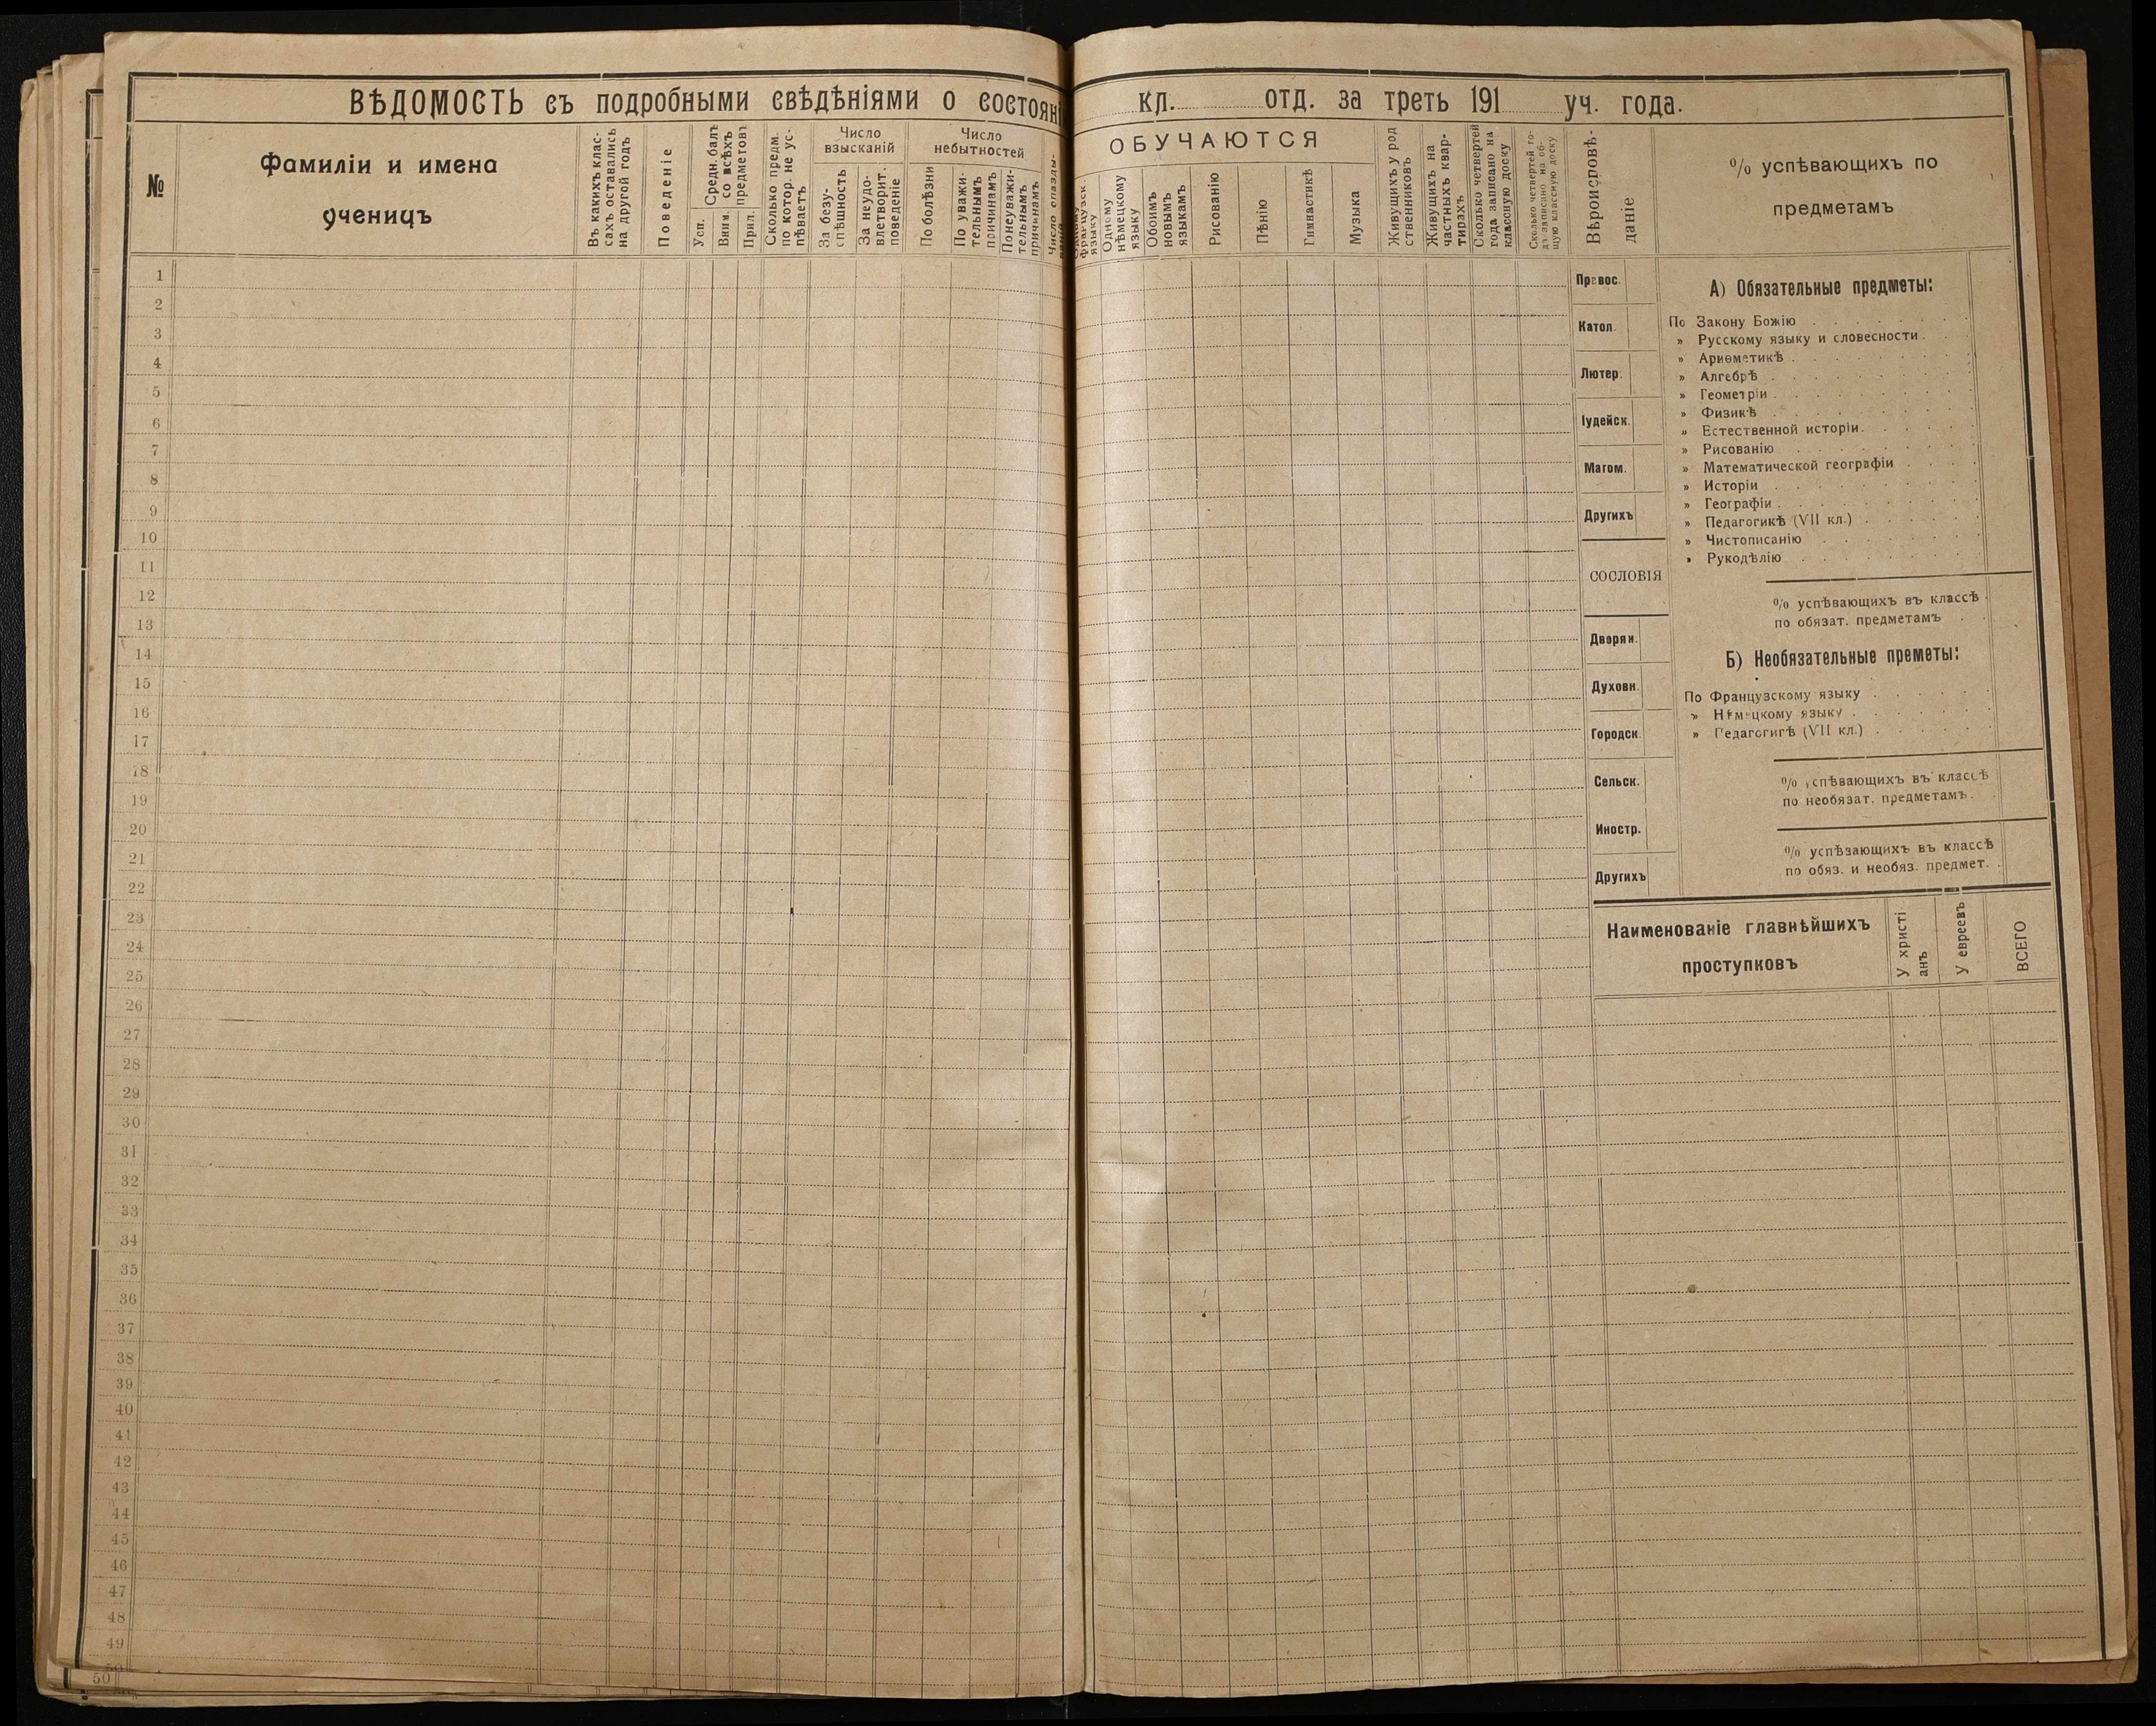 ВѢДОМОСТЬ съ подробными свѣдѣніями о состоян
кл. отд. за треть 191 уч. года.
№
Фамиліи и имена
ученицъ
Въ какихъ клас-
сахъ оставались
на другой годъ
Поведеніе
Средн. балъ
со всѣхъ
предметовъ
Усп.
Вним.
Прил.
Сколько предм.
по котор. не ус-
пѣваетъ
Число
взысканій
За безу-
спѣшность
За неудо-
влетворит.
поведеніе
Число
небытностей
По болѣзни
По уважи-
тельнымъ
причинамъ
Понеуважи-
тельнымъ
причинамъ
Число опазды-
ОБУЧАЮТСЯ
французск.
языку
Одному
нѣмецкому
языку
Обоимъ
новымъ
языкамъ
Рисованію
Пѣнію
Гимнастикѣ
Музыка
Живущихъ у род
ственниковъ
Живущихъ на
частныхъ квар-
тирахъ
Сколько четвертей
года записано на
классную доску
Сколько четвертей го-
да записано на об-
щую классную доску
Вѣроисповѣ-
даніе
% успѣвающихъ по
предметамъ
1
2
3
4
5
6
7
8
9
10
11
12
13
14
15
16
17
18
19
20
21
22
23
24
25
26
27
28
29
30
31
32
33
34
35
36
37
38
39
40
41
42
43
44
45
46
47
48
49
50
50
Правос.
Катол.
Лютер.
Іудейск.
Магом.
Другихъ
СОСЛОВІЯ
Дворян.
Духовн.
Городск.
Сельск.
Иностр.
Другихъ
А) Обязательные предметы:
По Закону Божію
» Русскому языку и словесности
» Ариѳметикѣ
» Алгебрѣ
» Геометріи
» Физикѣ
» Естественной исторіи
» Рисованію
» Математической географіи
» Исторіи
» Географіи
» Педагогикѣ (VII кл.)
» Чистописанію
» Рукодѣлію
% успѣвающихъ въ классѣ
по обязат. предметамъ
Б) Необязательные преметы:
По Французскому языку
» Нѣмецкому языку
» Педагогигѣ (VII кл.)
% успѣвающихъ въ классѣ
по необязат. предметамъ
% успѣвающихъ въ классѣ
по обяз. и необяз. предмет.
Наименованіе главнѣйшихъ
проступковъ
У христі
анъ
У евреевъ
ВСЕГО